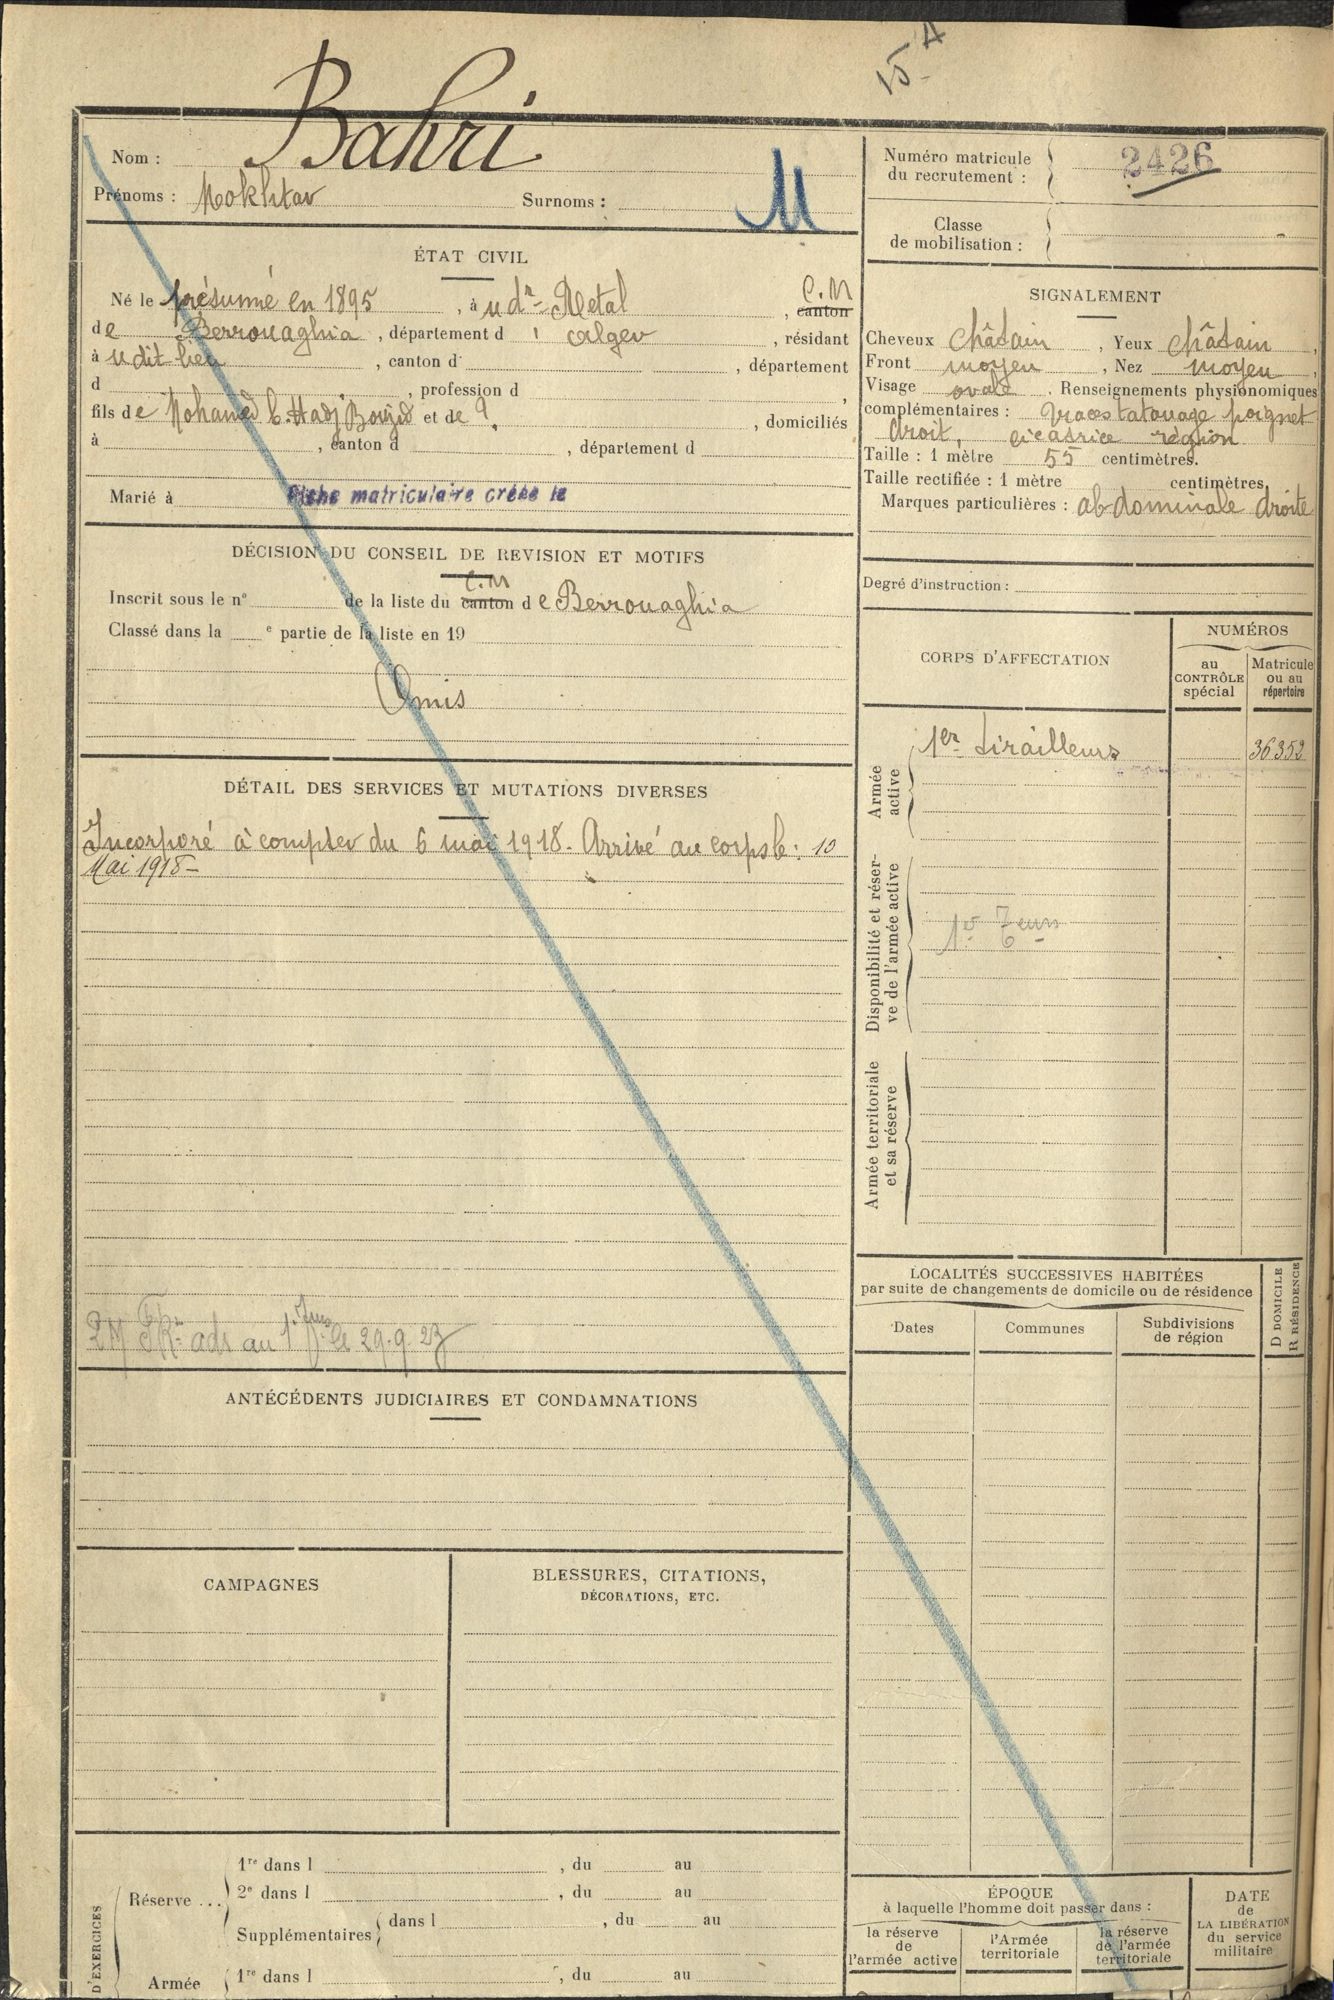 15 A
Bahri
Nom :
Prénoms : Mokhtar Surnoms :
M
ÉTAT CIVIL
Né le présumé en 1895, à u dr Retal, C.M canton
de Berrouaghia, département d' alger, résidant
à u dit lieu, canton d , département
d , profession d ,
fils de Mohamed b. Hadj Bouzid et de ?, , domiciliés
à , canton d , département d
Marié à Fiche matriculaire créée le
DÉCISION DU CONSEIL DE REVISION ET MOTIFS
Inscrit sous le n° de la liste du canton C.M de Berrouaghia
Classé dans la e partie de la liste en 19
Omis
DÉTAIL DES SERVICES ET MUTATIONS DIVERSES
Incorporé à compter du 6 mai 1918. Arrivé au corps le : 10
Mai 1918 -
ads au 1 le 29.9.23
ANTÉCÉDENTS JUDICIAIRES ET CONDAMNATIONS
CAMPAGNES
BLESSURES, CITATIONS,
DÉCORATIONS, ETC.
D'EXERCICES
Réserve ...
1re dans l , du au
2e dans l , du au
Supplémentaires dans l , du au
Armée 1re dans l , du au
Numéro matricule
du recrutement : 2426
Classe
de mobilisation : -
SIGNALEMENT
Cheveux châtain, Yeux châtain,
Front moyen, Nez moyen,
Visage ovale. Renseignements physionomiques
complémentaires : traces tatouage poignet
droit, cicatrice région
Taille : 1 mètre 55 centimètres.
Taille rectifiée : 1 mètre centimètres.
Marques particulières : abdominale droite
Degré d'instruction :
CORPS D'AFFECTATION
NUMÉROS
au
CONTRÔLE
spécial
Matricule
ou au
répertoire
Armée
active
1er tirailleurs 36352
Disponibilité et réser-
ve de l'armée active
1er
Armée territoriale
et sa réserve
LOCALITÉS SUCCESSIVES HABITÉES
par suite de changements de domicile ou de résidence
D DOMICILE
R RÉSIDENCE
Dates
Communes
Subdivisions
de région
ÉPOQUE
à laquelle l'homme doit passer dans :
la réserve
de
l'armée active
l'Armée
territoriale
la réserve
de l'armée
territoriale
DATE
de
LA LIBÉRATION
du service
militaire